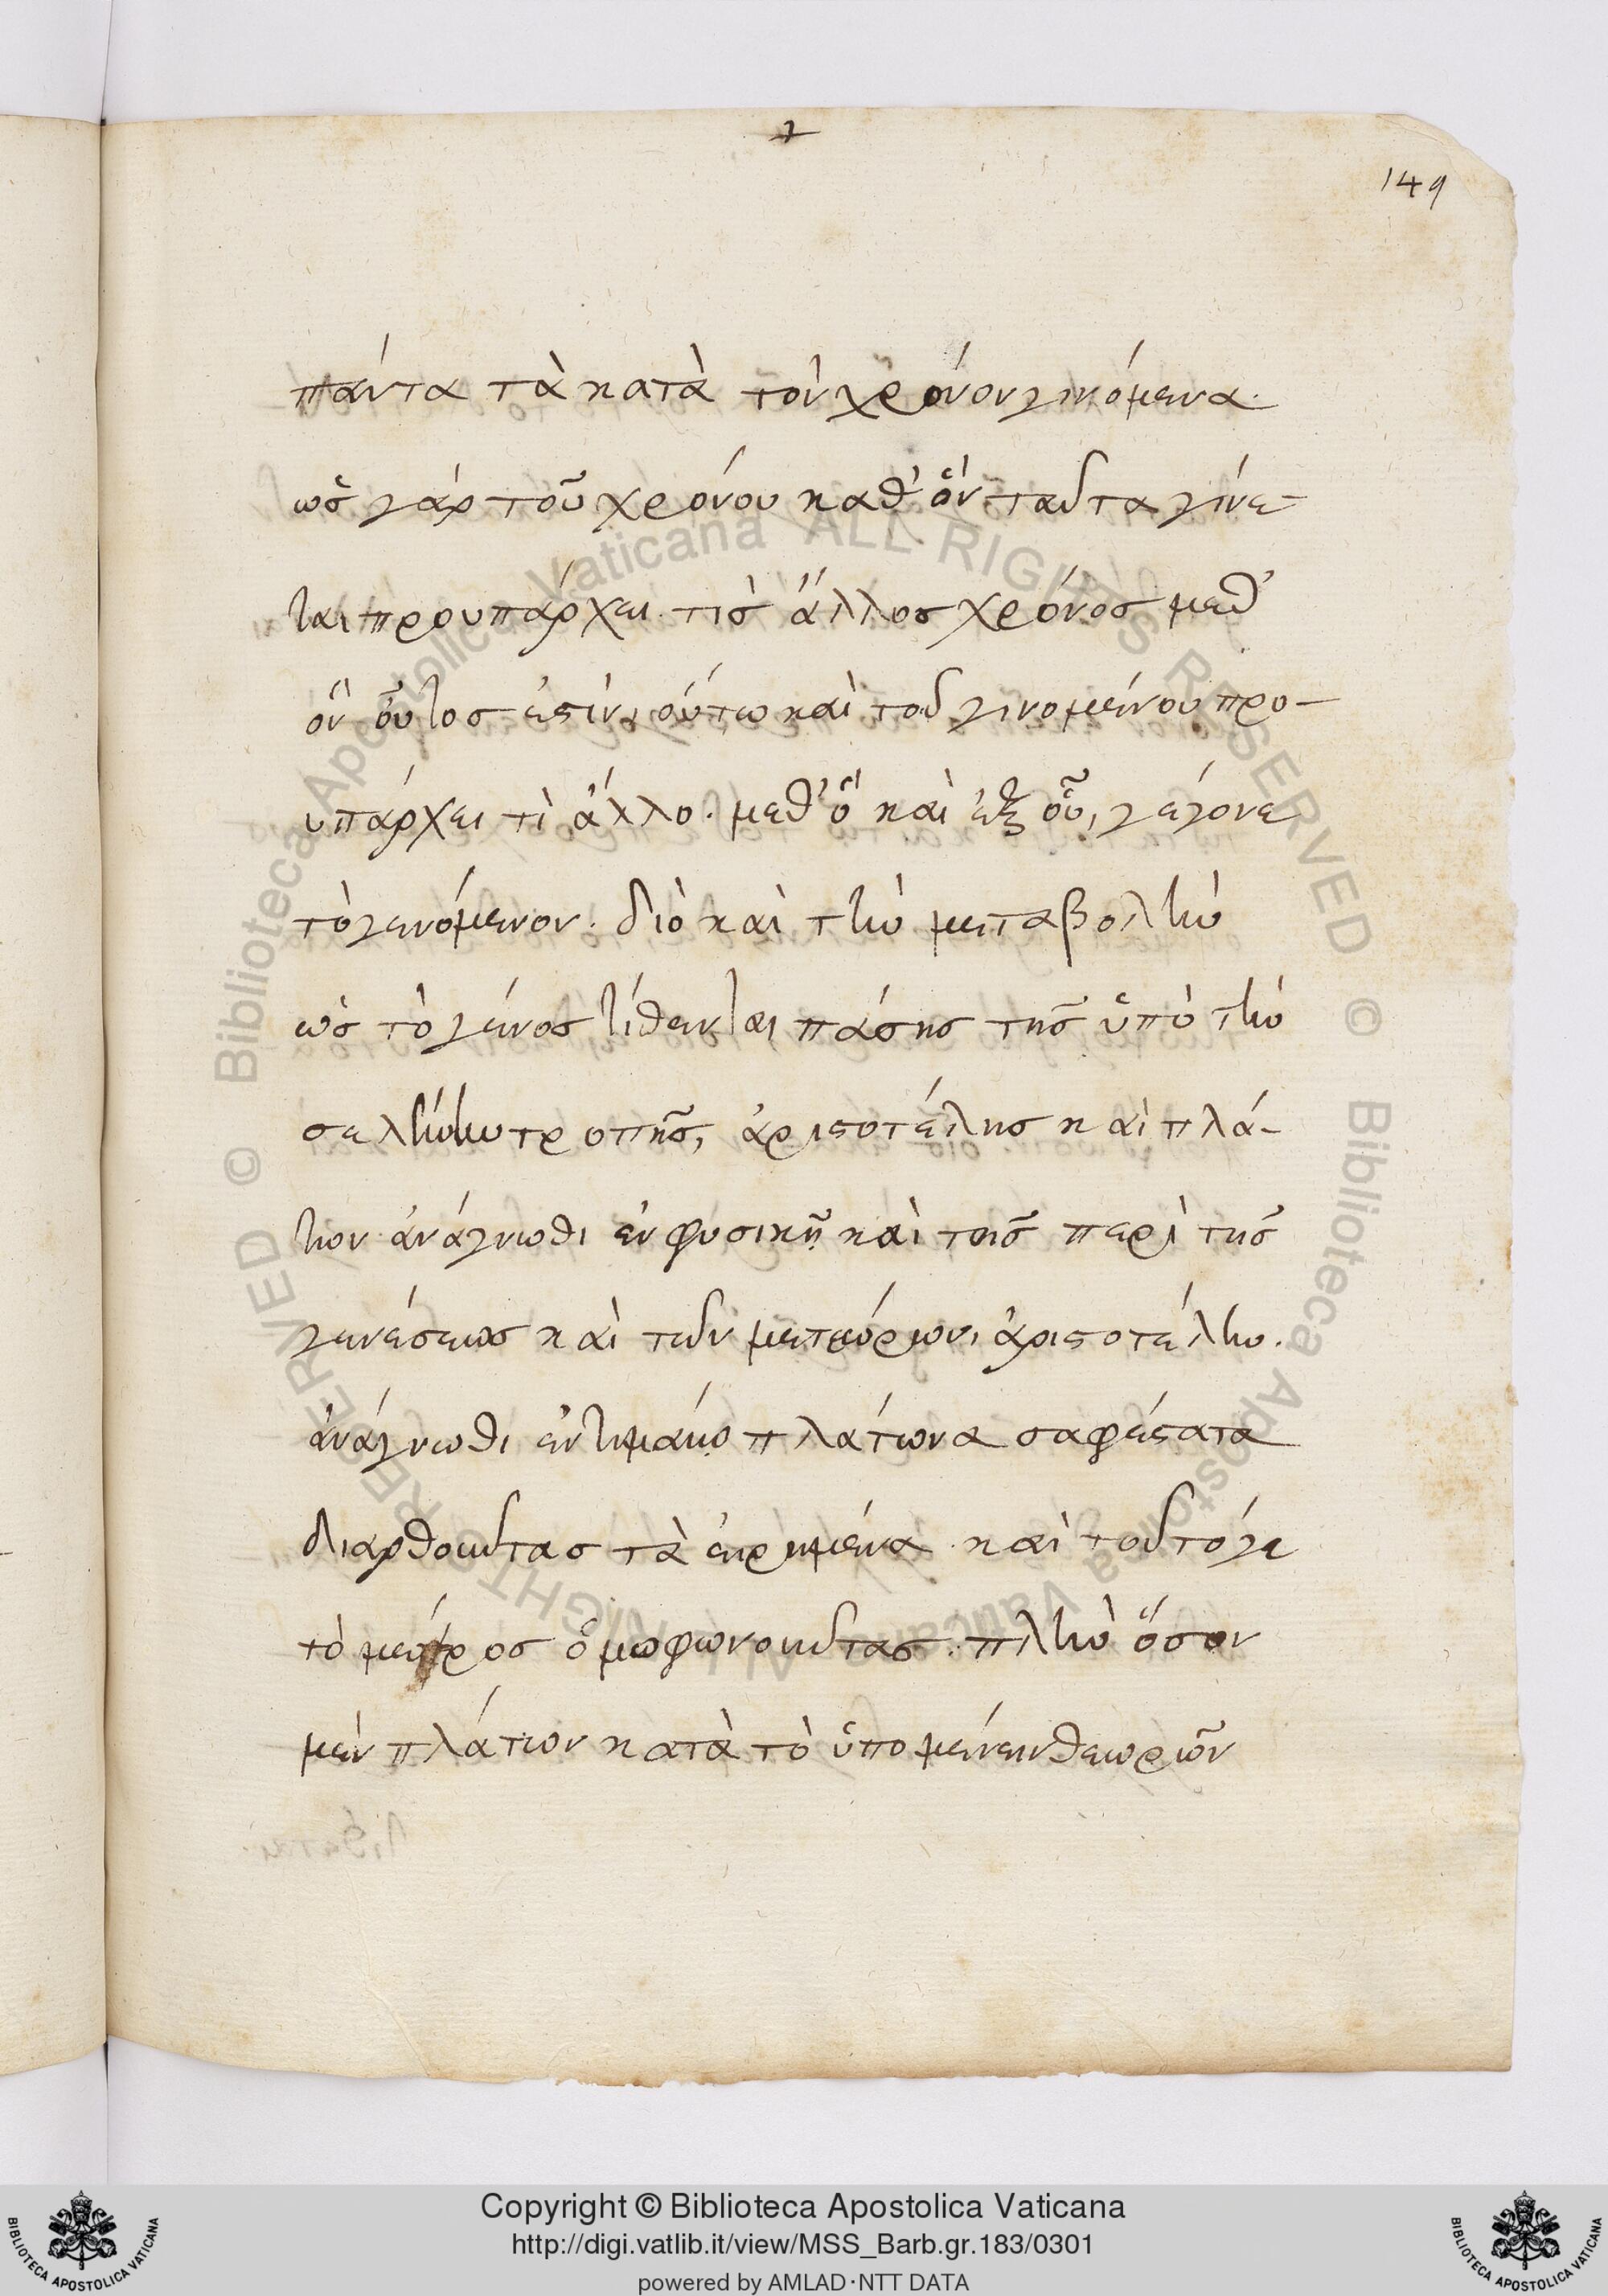 149
πάντα τὰ κατὰ τὸν χρόνον γινόμενα.
ὡς γὰρ τοῦ χρόνου καθ' ὃν ταῦτα γίνε-
ται προυπάρχει τὶς ἄλλος χρόνος μεθ'
ὃν οὗτος ἐστὶν, οὕτω καὶ τοῦ γινομένου προ-
υπάρχει τὶ ἄλλο. μεθ' ὃ καὶ ἐξ οὗ, γέγονε
τὸ γενόμενον. διὸ καὶ τὴν μεταβολὴν
ὡς τὸ γένος τίθενται πάσης τῆς ὑπὸ τὴν
σελήνην τροπῆς, ἀριστοτέλης καὶ πλά-
των ἀνάγνωθι ἐν φυσικῇ καὶ τοῖς περὶ τῆς
γενέσεως καὶ τῶν μετεώρων, ἀριστοτέλην.
ἀνάγνωθι ἐν τιμαίῳ πλάτωνα σαφέστατα
διαρθροῦντας τὰ εἰρημένα. καὶ τοῦτό γε
τὸ μέρος ὁμοφωνοῦντας. πλὴν ὅσον
μὲν πλάτων κατὰ τὸ ὑπομένειν θεωρῶν
Copyright © Biblioteca Apostolica Vaticana
http://digi.vatlib.it/view/MSS_Barb.gr.183/0301
powered by AMLAD·NTT DATA
BIBLIOTECA APOSTOLICA VATICANA
BIBLIOTECA APOSTOLICA VATICANA
© Biblioteca Apostolica Vaticana ALL RIGHTS RESERVED
© Biblioteca Apostolica Vaticana ALL RIGHTS RESERVED